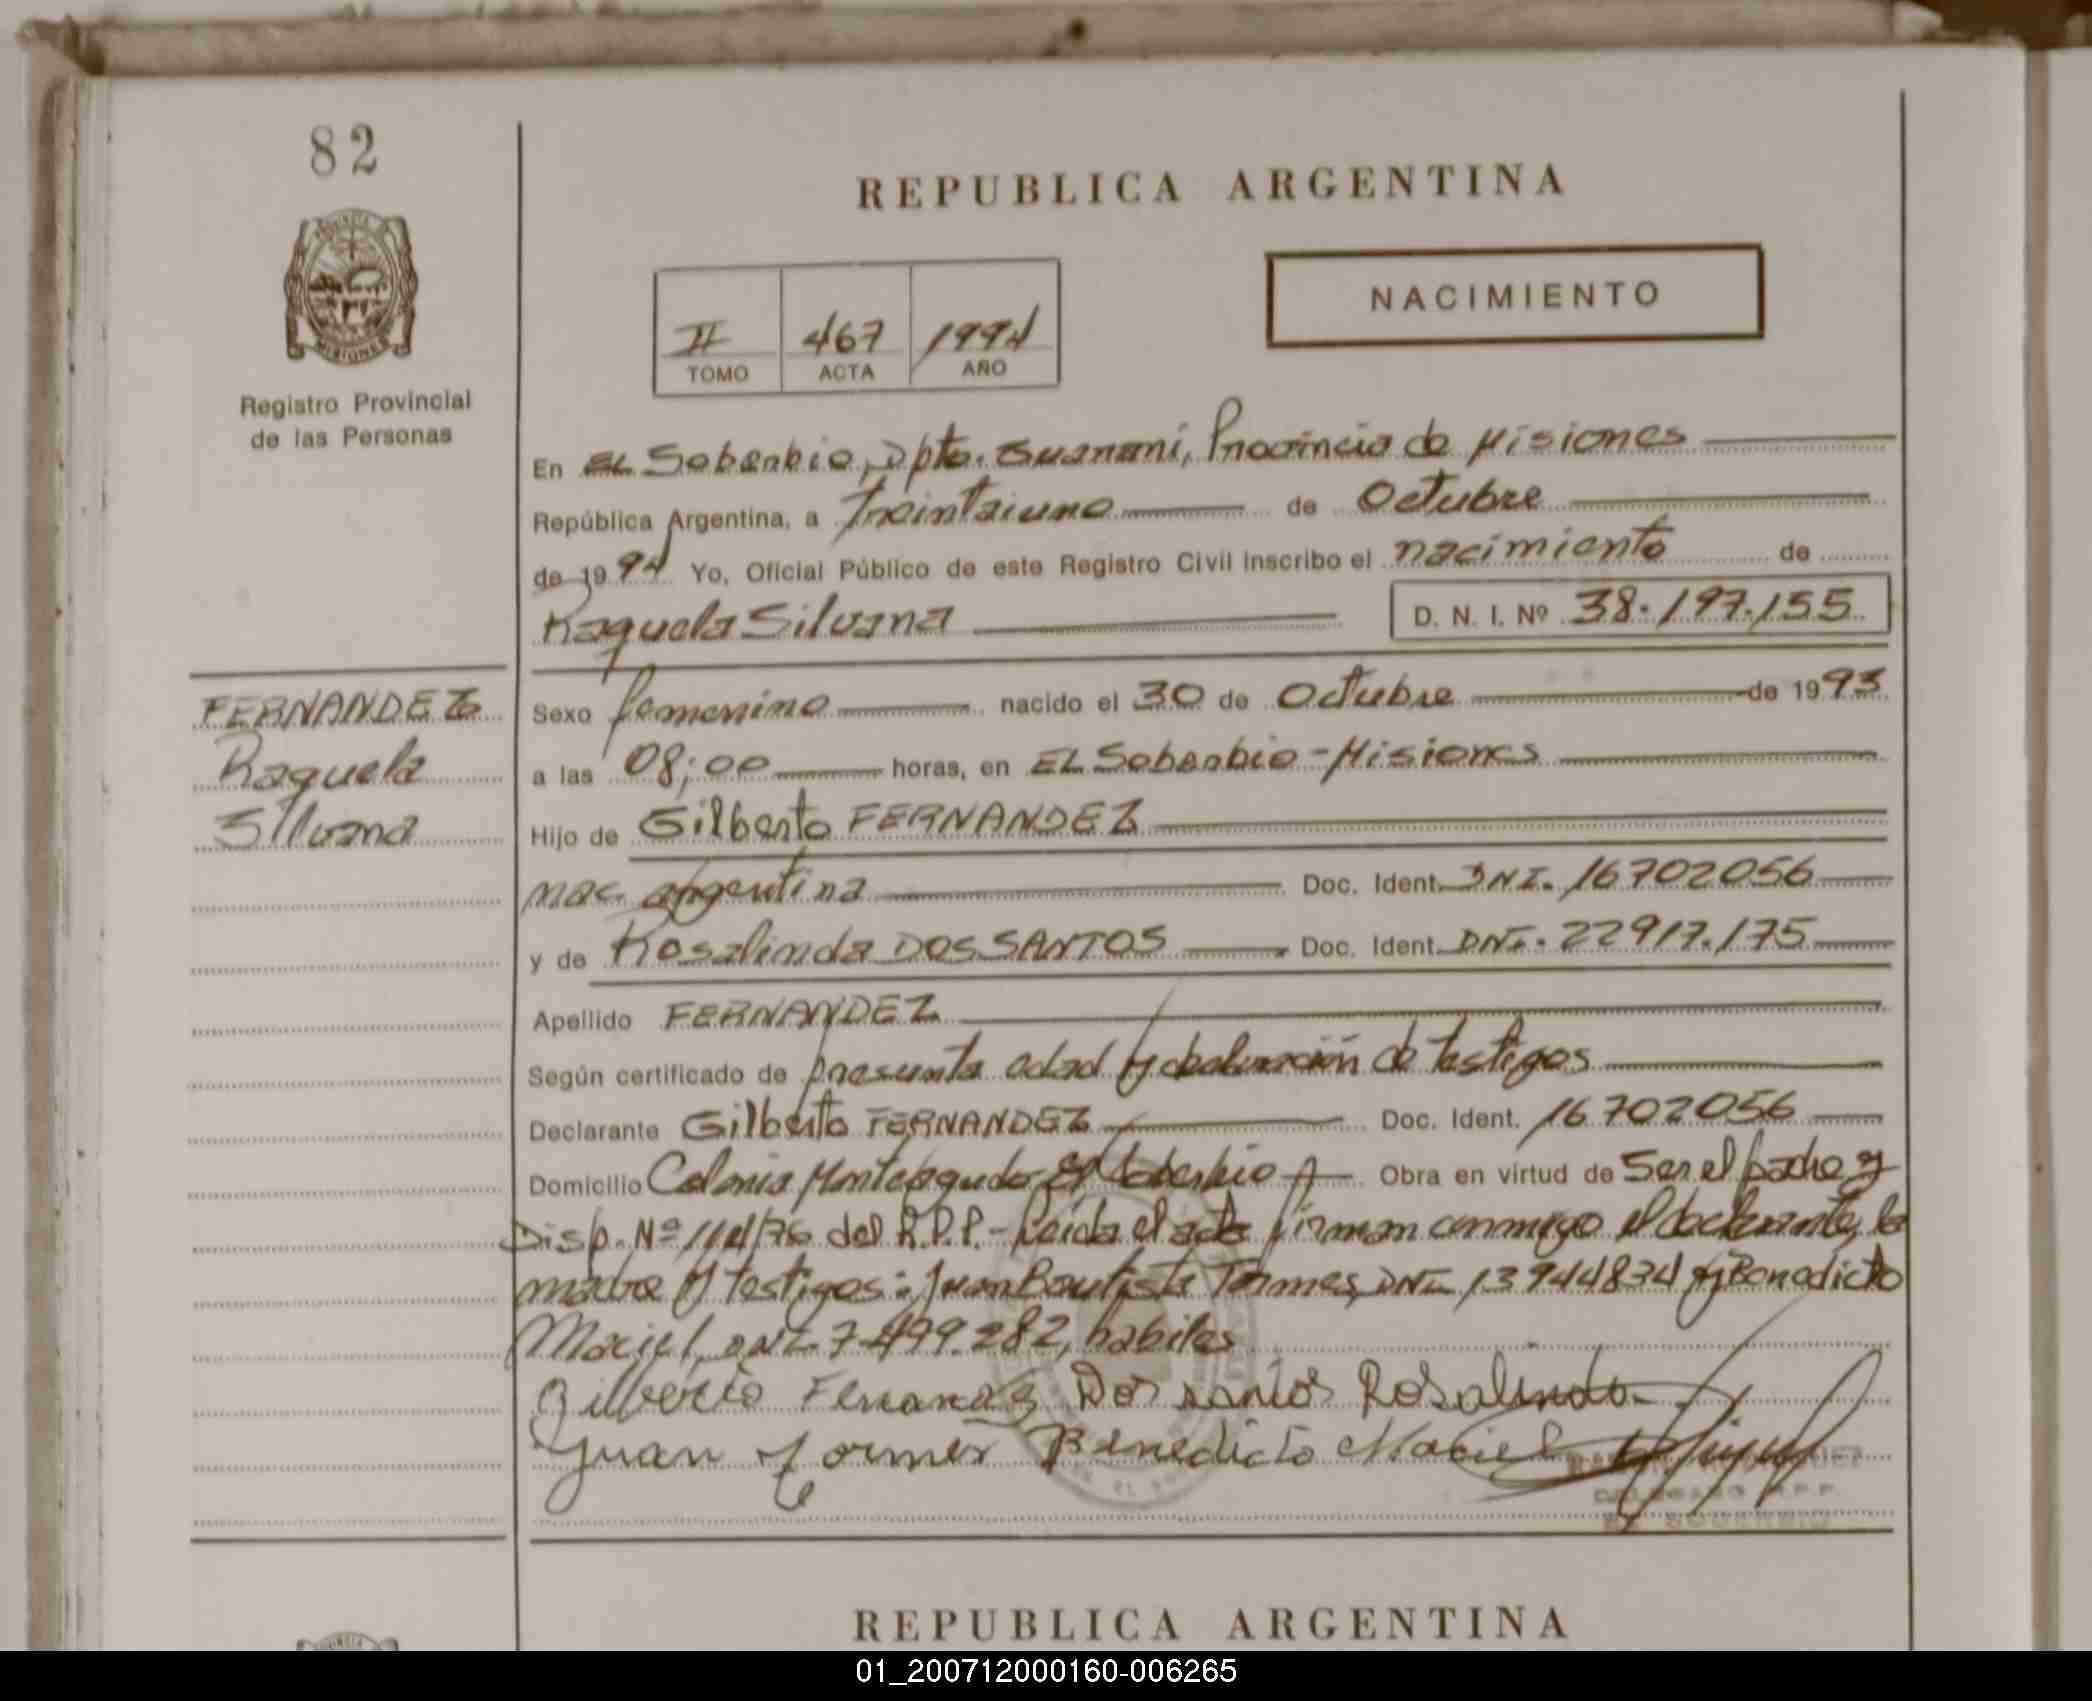 82
REPUBLICA ARGENTINA
PROVINCIA DE
MISIONES
Registro Provincial
de las Personas
NACIMIENTO
II 467 1994
TOMO ACTA AÑO
En EL Soberbio, Dpto. Guarani, Provincia de Misiones
República Argentina, a Treintaiuno de Octubre
de 1994 Yo, Oficial Público de este Registro Civil inscribo el nacimiento de
Raquela Silvana D. N. I. Nº 38.197.155
FERNANDEZ
Raquela
Silvana
Sexo femenino nacido el 30 de Octubre de 1993
a las 08;00 horas, en EL Soberbio - Misiones
Hijo de Gilberto FERNANDEZ
nac. argentina Doc. Ident. DNI. 16702056
y de Rosalinda DOS SANTOS Doc. Ident. DNI. 22917.175
Apellido FERNANDEZ
Según certificado de presunta edad y declaración de testigos
Declarante Gilberto FERNANDEZ Doc. Ident. 16702056
Domicilio Colonia Monteagudo El Soberbio Obra en virtud de Ser el padre y
Disp. Nº 114/76 del R.P.P. - Leida el acta firman conmigo el declarante, la
madre y testigos: Juan Bautista Tormes, DNI 13944834 y Benedicto
Maciel, DNI 7.499.282, habiles
Gilberto Fernandez Dos santos Rosalinda
Juan Tormes Benedicto Maciel
DELEGADO R.P.P.
EL SOBERBIO
REPUBLICA ARGENTINA
01_200712000160-006265